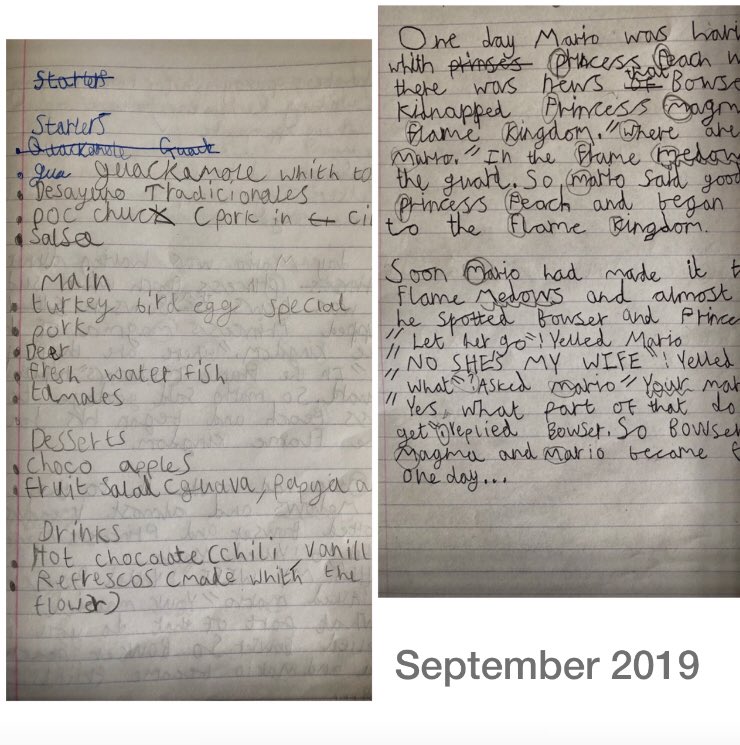 Starters
Starters
Guackamole Guack
gua guackamole whith to
Desayuno Tradicionales
poc chuck (pork in ci
Salsa
Main
turkey bird egg special
pork
Deer
fresh water fish
tamales
Desserts
choco apples
fruit Salad (guava, papya a
Drinks
Hot chocolate (chili, vanill
Refrescos (made whith the
flower)
One day Mario was havi
with prinses Princess Peach w
there was news of that Bowse
kidnapped Princess Magm
Flame Kingdom. "Where are
Mario." In the Flame medow
the guard. So Mario said good
Princess Peach and began
to the Flame Kingdom.
Soon Mario had made it t
Flame Medows and almost
he spotted Bowser and Prince
"Let her go"! Yelled Mario
"NO SHE'S MY WIFE"! Yelled
"What"? Asked mario "Your mar
"Yes, what part of that do
get"? replied Bowser. So Bowser
Magma and Mario became f
one day...
September 2019